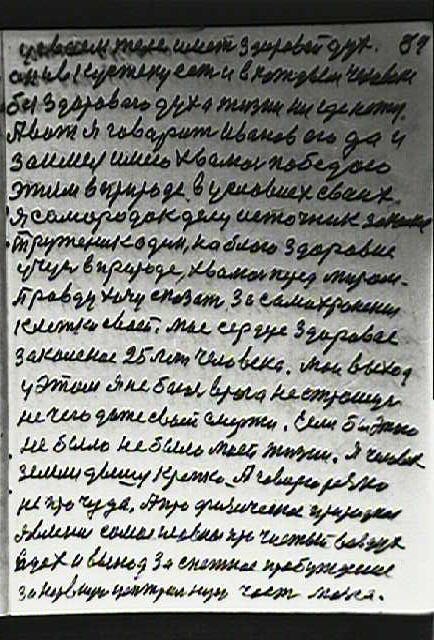 здоровом теле имеет здоровый дух. 59
он в каждом человеке
без здорового духа жизни нигде нету.
А вот я говорит Иванов ого да и
занимаюсь хвалюсь победою
этим в природе в условиях своих.
Я самородок делу источник закона
труженик один, на благо здоровие
учусь в природе, хвалюсь перед миром.
Правду хочу сказать за самохранение
клетки своей. Мое сердце здоровое
закаленое 25 лет человека. Мой выход
у этом я не боюсь врага не страшуся
не чего даже своей смерти. Если б этого
не было не было моей жизни. Я человек
земли дышу крепко. А говорю резко
не про чудо. А про физическое природное
явление самое главное про чистый воздух
вдох и выход за снежное пробуждение
за нервную центральную часть мозга.